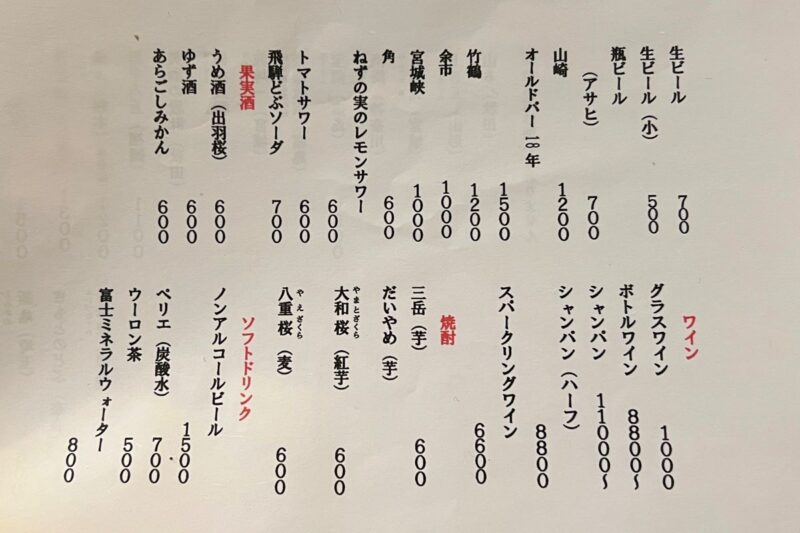 生ビール 700
生ビール（小） 500
瓶ビール
（アサヒ） 700
山崎 1200
オールドパー 18年
1500
竹鶴 1200
余市 1000
宮城峡 1000
角 600
ねずの実のレモンサワー
600
トマトサワー 600
飛騨どぶソーダ 700
果実酒
うめ酒（出羽桜） 600
ゆず酒 600
あらごしみかん 600
ワイン
グラスワイン 1000
ボトルワイン 8800〜
シャンパン 11000〜
シャンパン（ハーフ）
8800
スパークリングワイン
6600
焼酎
三岳（芋） 600
だいやめ（芋）
大和桜（紅芋） 600
やまとざくら
八重桜（麦） 600
やえざくら
ソフトドリンク
ノンアルコールビール
1500
ペリエ（炭酸水） 700
ウーロン茶 500
富士ミネラルウォーター
800